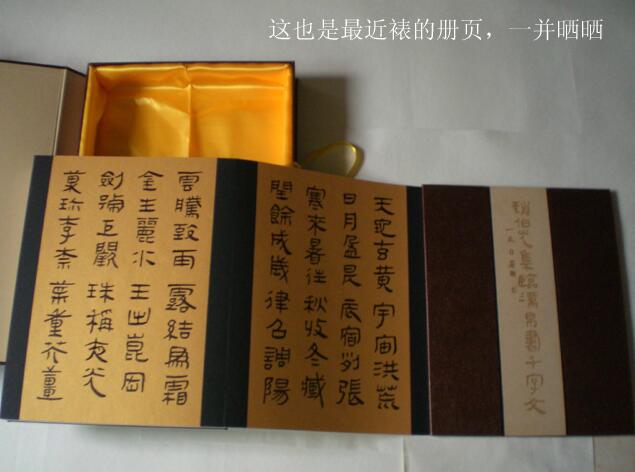 这也是最近裱的册页，一并晒晒
天地玄黄 宇宙洪荒
日月盈昃 辰宿列張
寒来暑往 秋收冬藏
閏餘成歲 律吕調陽
雲騰致雨 露結為霜
金生麗水 玉出崑岡
劍號巨闕 珠稱夜光
菓珎李柰 菜重芥薑
集臨萬昜書千字文